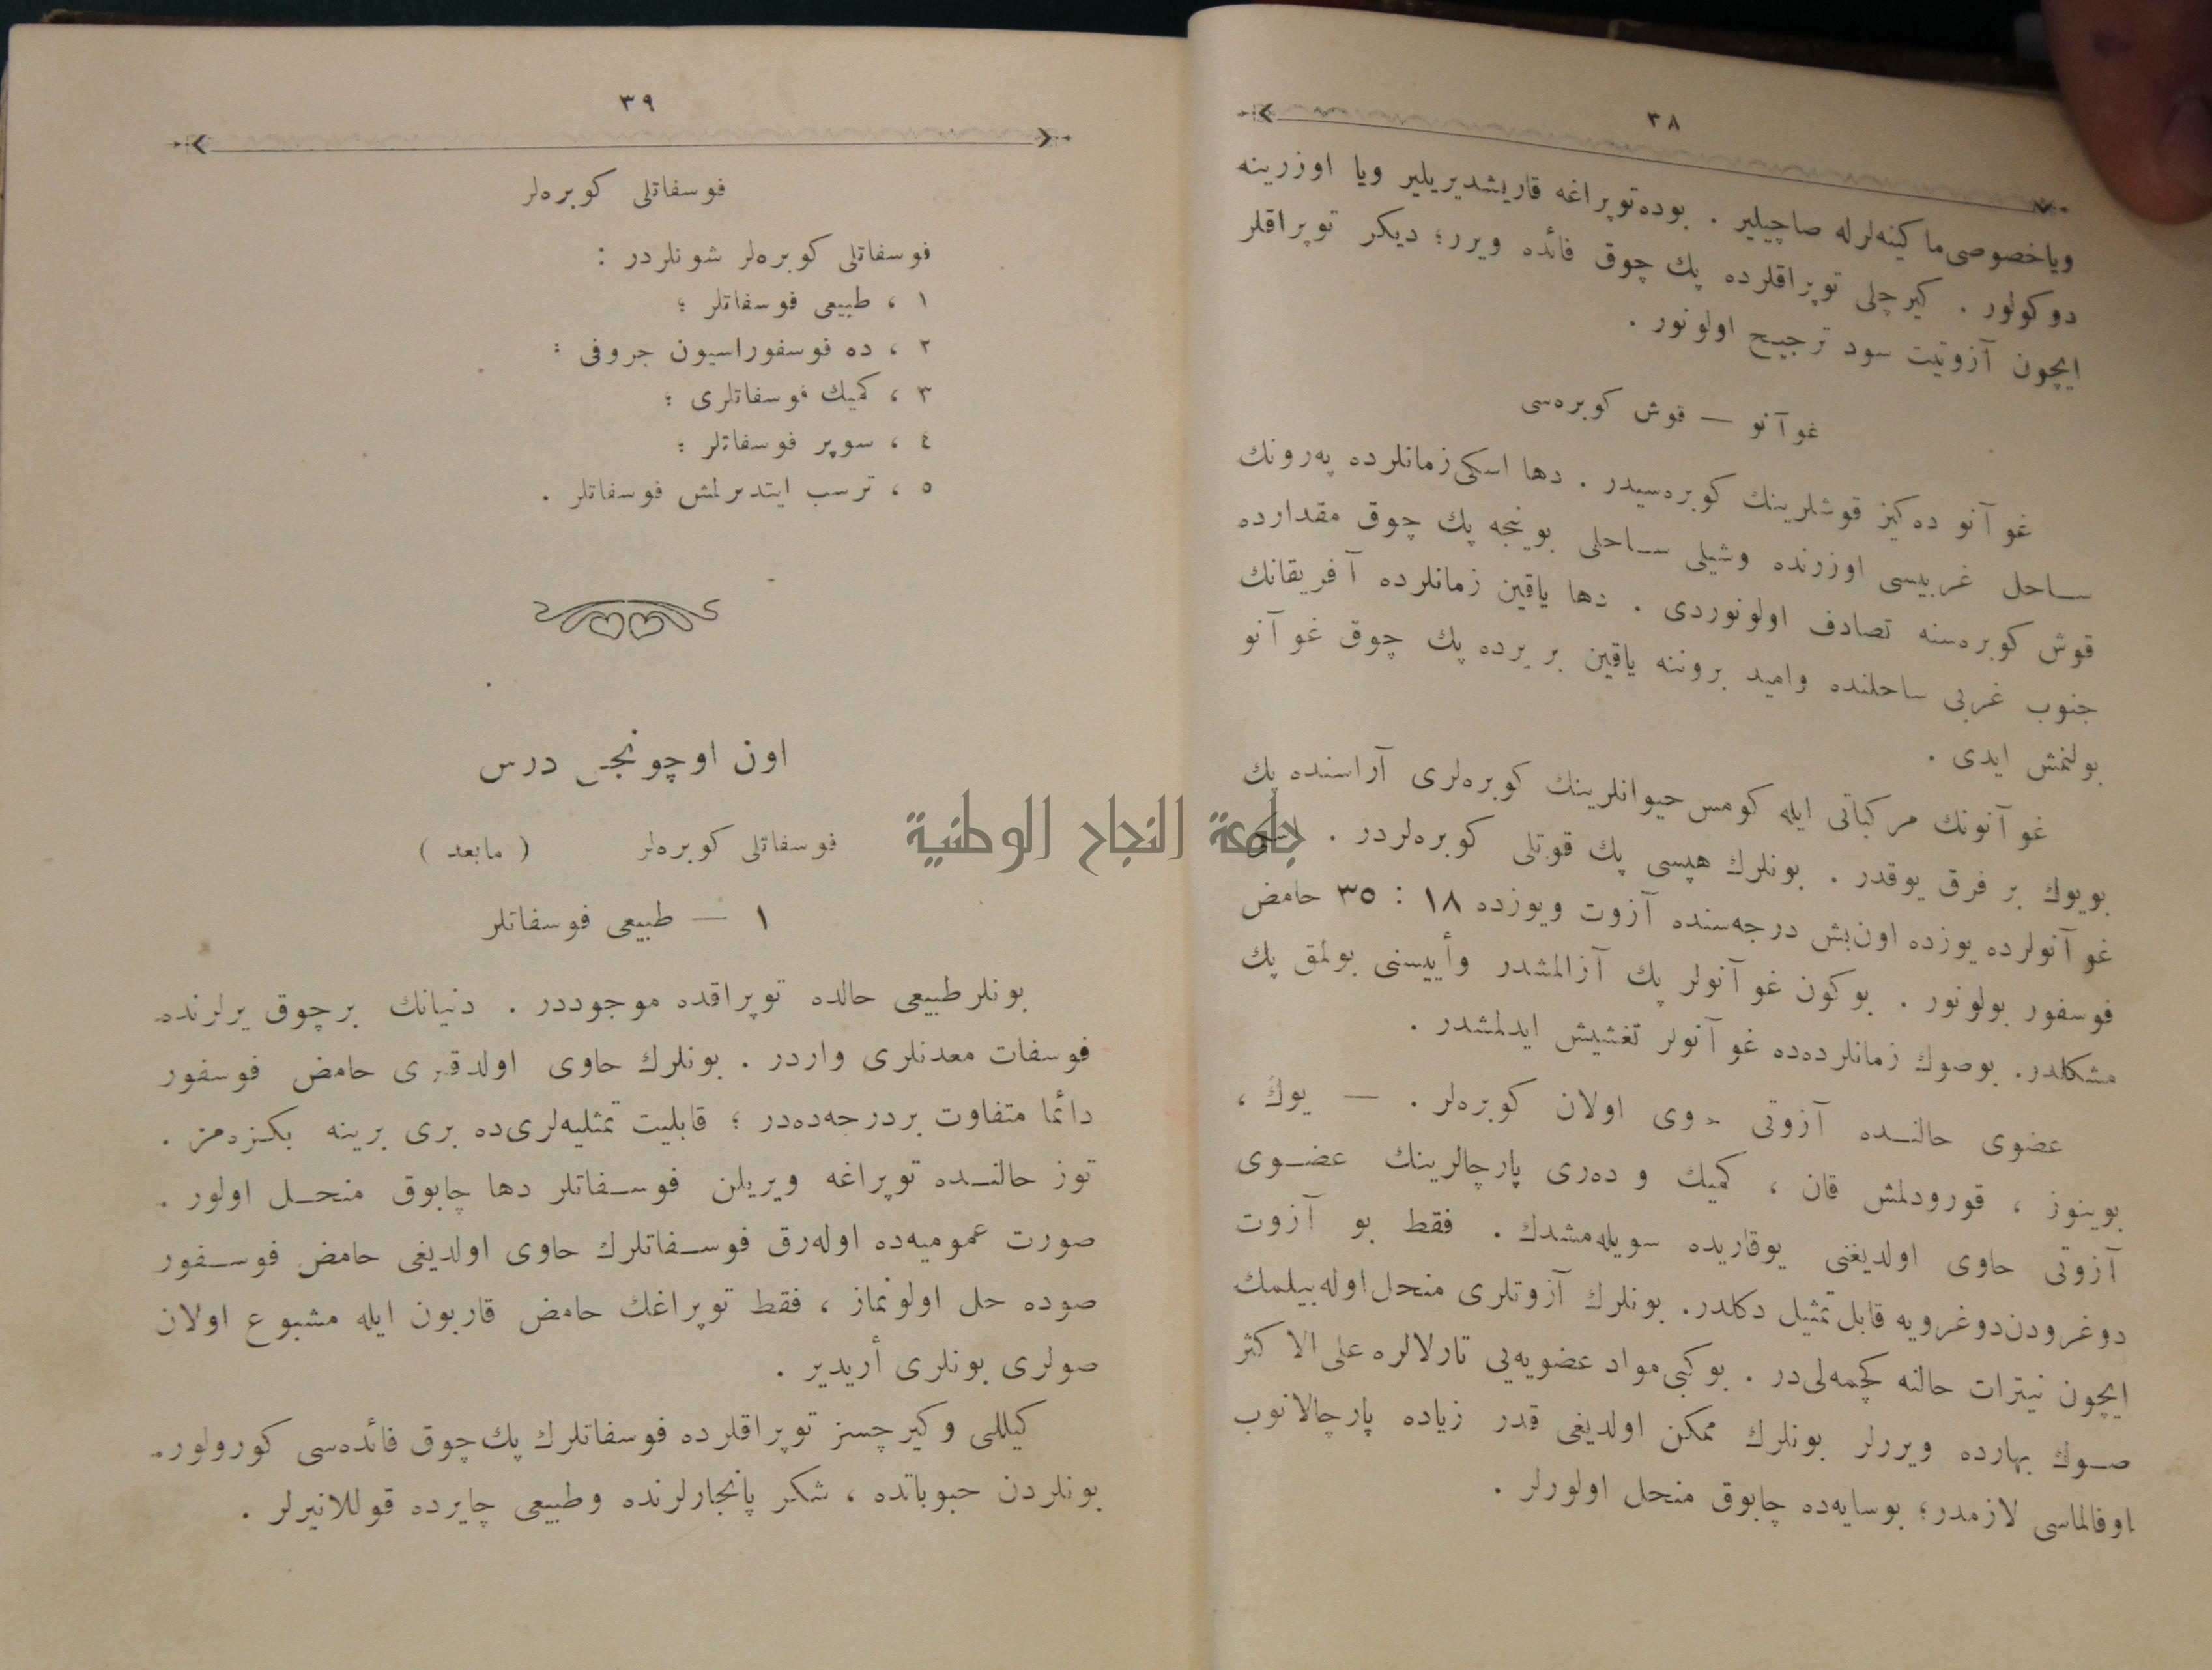 ٣٨
ویاخصوصی ماكینه‌لرله صاچیلیر . بوده‌توپراغه قاریشدیریلیر ویا اوزرینه
دوكولور . كیرچلی توپراقلرده پك چوق فائده ویرر؛ دیكر توپراقلر
ایچون آزوتیت سود ترجیح اولونور .
غوآنو — قوش كوبره‌سی
غوآنو ده‌كیز قوشلرینك كوبره‌سیدر . دها اسكی زمانلرده په‌رونك
ساحل غربیسی اوزرنده وشیلی ساحلی بوینجه پك چوق مقدارده
قوش كوبره‌سنه تصادف اولونوردی . دها یاقین زمانلرده آفریقانك
جنوب غربی ساحلنده وامید بروننه یاقین بریرده پك چوق غوآنو
بولنمش ایدی .
غوآنونك مركباتی ایله كومس حیوانلرینك كوبره‌لری آراسنده پك
بویوك بر فرق یوقدر . بونلرك هپسی پك قوتلی كوبره‌لردر . اسكی
غوآنولرده یوزده اون‌بش درجه‌سنده آزوت ویوزده ١٨ : ٣٥ حامض
فوسفور بولونور . بوكون غوآنولر پك آزالمشدر وأییسنی بولمق پك
مشكلدر. بوصوك زمانلرده‌ده غوآنولر تغشیش ایدلمشدر .
عضوی حالنده آزوتی حاوی اولان كوبره‌لر . — یوك ،
بوینوز ، قورودلمش قان ، كمیك و ده‌ری پارچالرینك عضوی
آزوتی حاوی اولدیغنی یوقاریده سویله‌مشدك . فقط بو آزوت
دوغرودن‌دوغرویه قابل تمثیل دكلدر. بونلرك آزوتلری منحل اوله‌بیلمك
ایچون نیترات حالنه كچمه‌لی‌در . بوكبی مواد عضویه‌یی تارلالره علی‌الاكثر
صوك بهارده ویررلر بونلرك ممكن اولدیغی قدر زیاده پارچالانوب
اوفالماسی لازمدر؛ بوسایه‌ده چابوق منحل اولورلر .
٣٩
فوسفاتلی كوبره‌لر
فوسفاتلی كوبره‌لر شونلردر :
١ ، طبیعی فوسفاتلر ؛
٢ ، ده فوسفوراسیون جروفی ؛
٣ ، كمیك فوسفاتلری ؛
٤ ، سوپر فوسفاتلر ؛
٥ ، ترسب ایتدیرلمش فوسفاتلر .
اون اوچونجی درس
فوسفاتلی كوبره‌لر ( مابعد )
١ — طبیعی فوسفاتلر
بونلرطبیعی حالده توپراقده موجوددر . دنیانك برچوق یرلرنده
فوسفات معدنلری واردر . بونلرك حاوی اولدقلری حامض فوسفور
دائما متفاوت بردرجه‌ده‌در ؛ قابلیت تمثلیه‌لری‌ده بری برینه بكزه‌مز .
توز حالنده توپراغه ویریلن فوسفاتلر دها چابوق منحل اولور .
صورت عمومیه‌ده اوله‌رق فوسفاتلرك حاوی اولدیغی حامض فوسفور
صوده حل اولونماز ، فقط توپراغك حامض قاربون ایله مشبوع اولان
صولری بونلری أریدیر .
كیللی وكیرچسز توپراقلرده فوسفاتلرك پك چوق فائده‌سی كورولور.
بونلردن حبوباتده ، شكر پانجارلرنده وطبیعی چایرده قوللانیرلر .
جامعة النجاح الوطنية